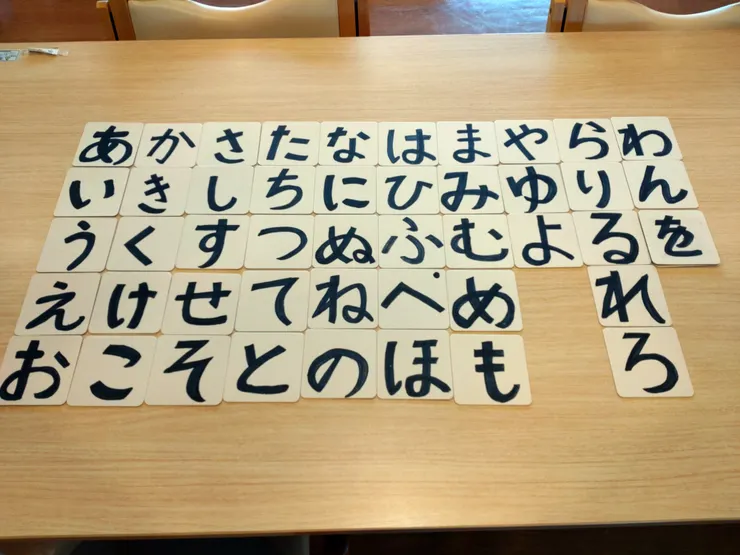 あかさたなはまやらわ
いきしちにひみゆりん
うくすつぬふむよるを
えけせてねへめれ
おこそとのほもろ